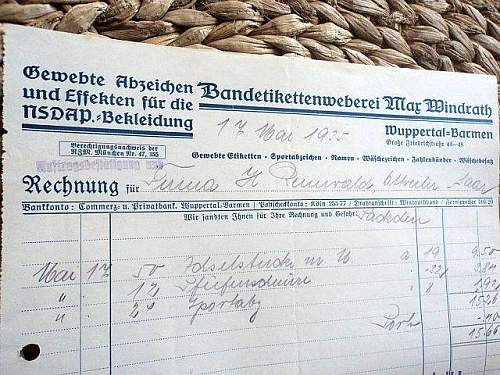 Gewebte Abzeichen
und Effekten für die
NSDAP.-Bekleidung
Bandetikettenweberei Max Windrath
17. Mai 1935
Wuppertal-Barmen
Große Friedrichstraße 44-48
Berechtigungsnachweis der
RZM. München Nr. 47, 355
Auftragsbestätigung und
Gewebte Etiketten - Sportabzeichen - Namen - Wäschezeichen - Zahlenbänder - Wäschebesatz
Rechnung für Firma H.
Saar
Bankkonto: Commerz- u. Privatbank, Wuppertal-Barmen / Postscheckkonto: Köln 255 77 / Drahtanschrift: Windratband / Fernsprecher
Wir sandten Ihnen für Ihre Rechnung und Gefahr: Päckchen
Mai 17. 50 a 19 9.50
" 12 -.32 3.84
" 24 " 8 1.92
15.26
Porto -.40
15.66